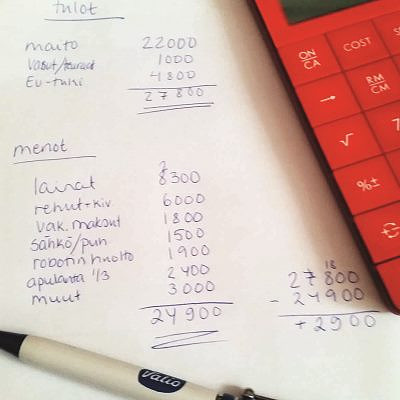 tulot
maito 22000
Vasut/teuraat 1000
EU-tuki 4800
27800
menot
2
lainat 8300
rehut+kiv. 6000
vak. maksut 1800
sähkö/puh 1500
robotin huolto 1900
apulanta 1/3 2400
muut 3000
24900
18
27800
- 24900
+ 2900
ON/CA
COST
→
RM/CM
√
7
%±
Valio